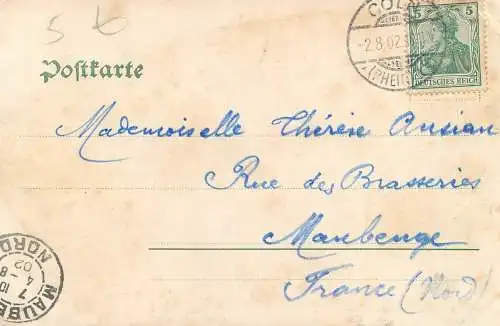 5 6
COLN
5 5
-2.8.02.
(RHEIN)
DEUTSCHES REICH
Postkarte
Mademoiselle Thérèse Ansian
Rue des Brasseries
Maubeuge
France (Nord)
MAUBE
7 10
4 - 8
02
NORD